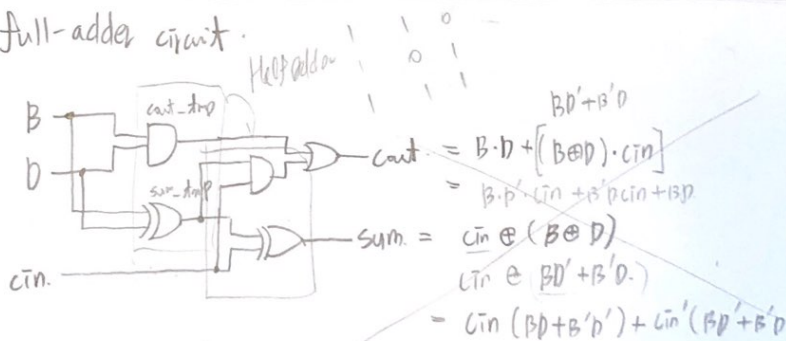 full-adder circuit.
1 1 0
0 1
1 1
Half adder
B
D
cin.
cout_tmp
sum_tmp
BD'+B'D
cout = B·D+[(B⊕D)·cin]
= B·D'·cin+B'Dcin+BD
sum = cin ⊕ (B⊕D)
cin ⊕ BD'+B'D.)
= cin (BD+B'D') + cin'(BD'+B'D